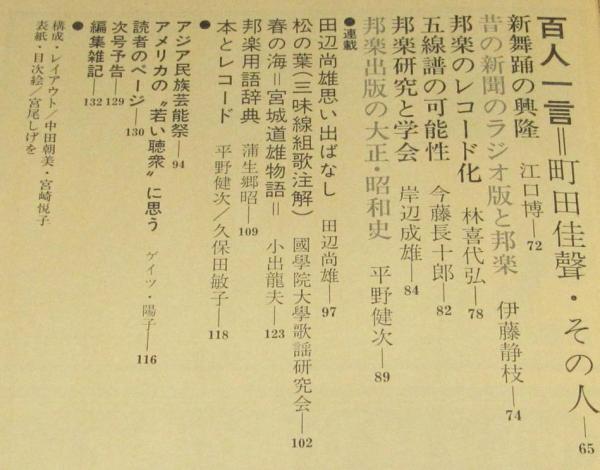 百人一言＝町田佳聲・その人—65
新舞踊の興隆　江口博—72
昔の新聞のラジオ版と邦楽　伊藤静枝—74
邦楽のレコード化　林喜代弘—78
五線譜の可能性　今藤長十郎—82
邦楽研究と学会　岸辺成雄—84
邦楽出版の大正・昭和史　平野健次—89
●連載
田辺尚雄思い出ばなし　田辺尚雄—97
松の葉（三味線組歌注解）　國學院大學歌謡研究会—102
春の海＝宮城道雄物語＝　小出龍夫—123
邦楽用語辞典　蒲生郷昭—109
本とレコード　平野健次／久保田敏子—118
●
アジア民族芸能祭—94
アメリカの〝若い聴衆〟に思う　ゲイツ・陽子—116
読者のページ—130
次号予告—129
編集雑記—132
●
構成・レイアウト／中田朝美・宮崎悦子
表紙・目次絵／宮尾しげを